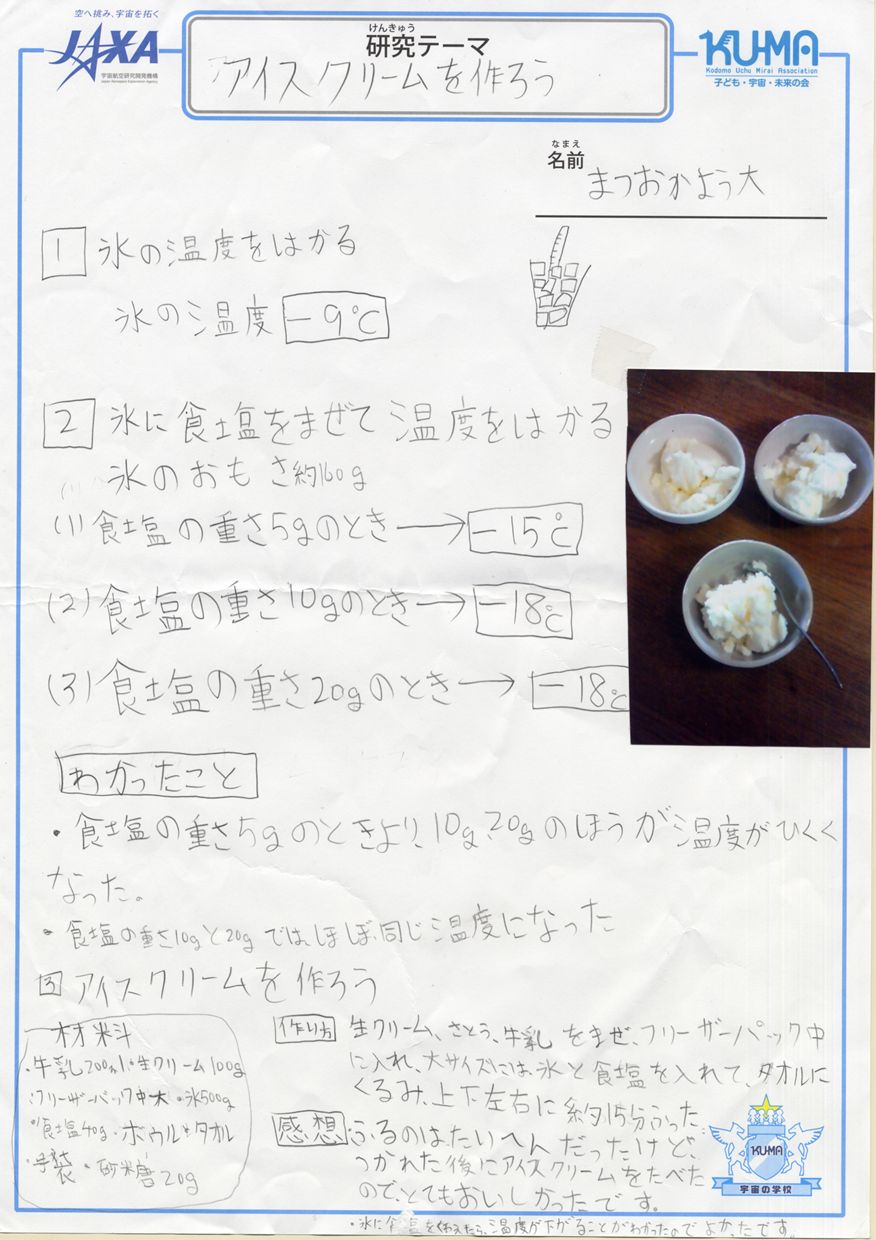 空へ挑み、宇宙を拓く
JAXA
宇宙航空研究開発機構
Japan Aerospace Exploration Agency
けんきゅう
研究テーマ
アイスクリームを作ろう
KU-MA
Kodomo Uchu Mirai Association
子ども・宇宙・未来の会
なまえ
名前 まつおかよう大
1 氷の温度をはかる
氷の温度 -9℃
2 氷に食塩をまぜて温度をはかる
氷のおもさ約160g
(1) 食塩の重さ5gのとき→ -15℃
(2) 食塩の重さ10gのとき→ -18℃
(3) 食塩の重さ20gのとき→ -18℃
わかったこと
・食塩の重さ5gのときより、10g、20gのほうが温度がひくく
なった。
・食塩の重さ10gと20gでは、ほぼ同じ温度になった
3 アイスクリームを作ろう
材料
・牛乳200ml・生クリーム100g
・フリーザーパック中大・氷500g
・食塩40g・ボウル・タオル
・手袋・砂糖20g
作り方 生クリーム、さとう、牛乳をまぜ、フリーザーパック中
に入れ、大サイズには、氷と食塩を入れて、タオルに
くるみ、上下左右に約15分ふった。
感想 ・ふるのはたいへんだったけど、
つかれた後にアイスクリームをたべた
ので、とてもおいしかったです。
・氷に食塩をくわえたら、温度が下がることがわかったのでよかったです。
KU-MA
宇宙の学校